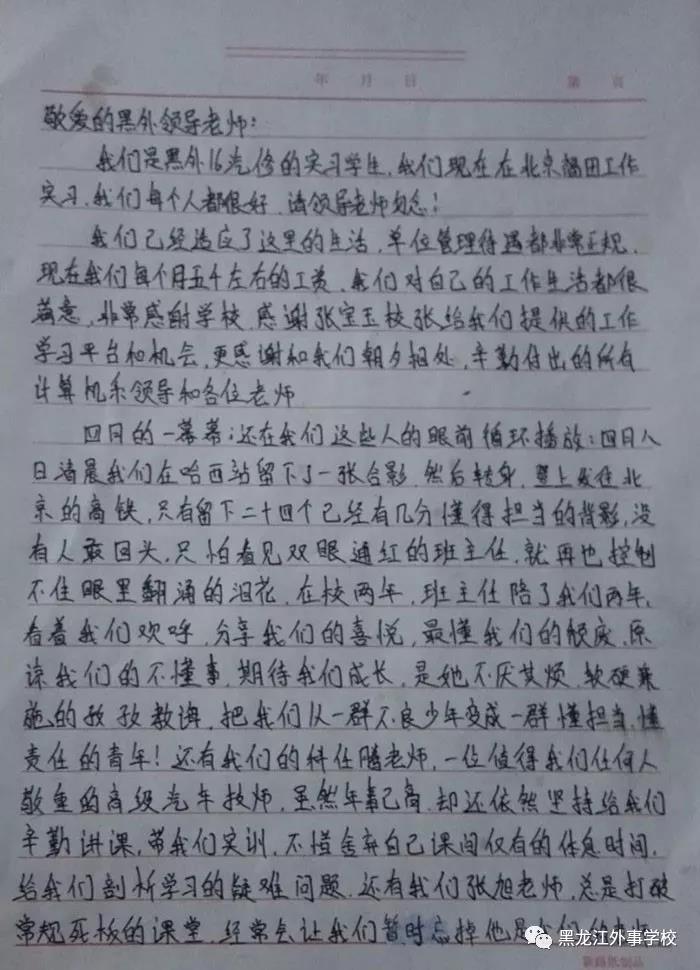 年 月 日 第 页
敬爱的黑外领导老师:
我们是黑外16汽修的实习学生,我们现在在北京福田工作
实习,我们每个人都很好,请领导老师勿念!
我们已经适应了这里的生活,单位管理待遇都非常正规,
现在我们每个月五千左右的工资,我们对自己的工作生活都很
满意,非常感谢学校,感谢张宝玉校张给我们提供的工作
学习平台和机会,更感谢和我们朝夕相处,辛勤付出的所有
计算机系领导和各位老师
四月的一幕幕;还在我们这些人的眼前循环播放:四月八
日清晨我们在哈西站留下了一张合影,然后转身,登上发往北
京的高铁,只有留下二十四个已经有几分懂得担当的背影,没
有人敢回头,只怕看见双眼通红的班主任,就再也控制
不住眼里翻涌的泪花,在校两年,班主任陪了我们两年,
看着我们欢呼,分享我们的喜悦,最懂我们的颓废,原
谅我们的不懂事,期待我们成长,是她不厌其烦,软硬兼
施的孜孜教诲,把我们从一群不良少年变成一群懂担当,懂
责任的青年!还有我们的科任腾老师,一位值得我们任何人
敬重的高级汽车技师,虽然年事已高,却还依然坚持给我们
辛勤讲课,带我们实训,不惜舍弃自己课间仅有的休息时间,
给我们剖析学习的疑难问题,还有我们张旭老师,总是打破
常规死板的课堂,经常会让我们暂时忘掉他是我们的
黑龙江外事学校